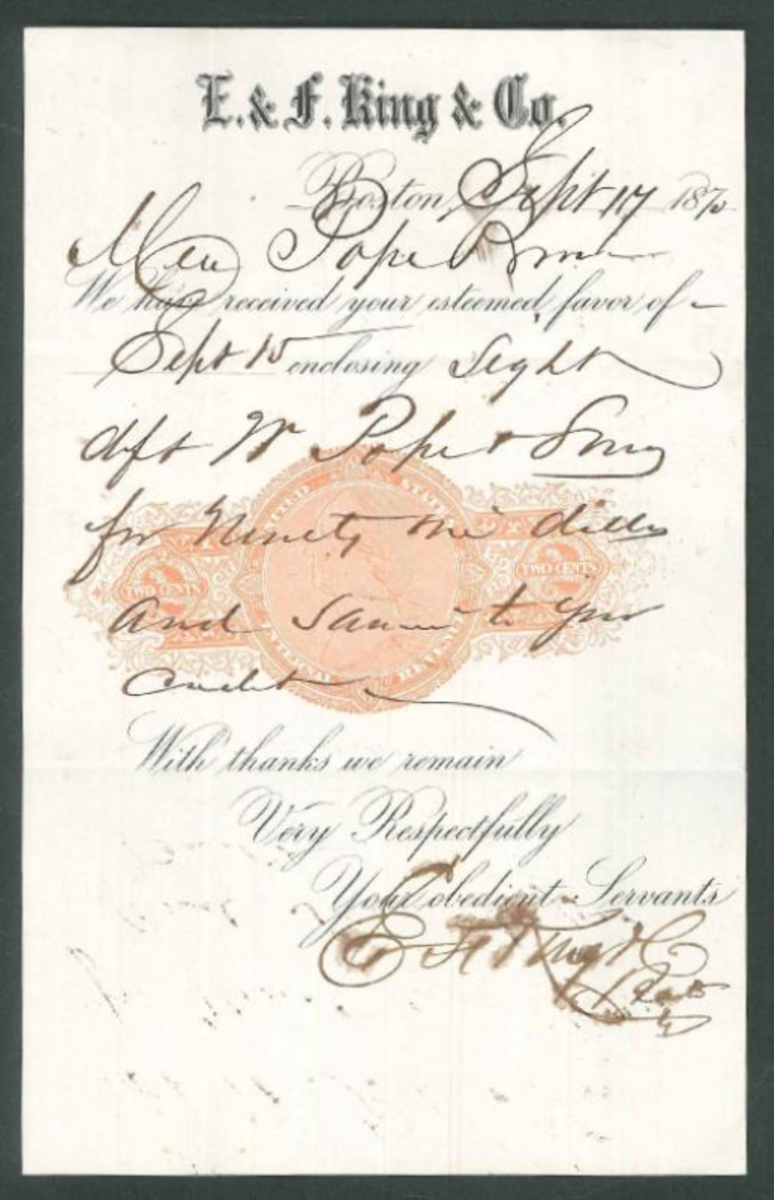 E. & F. King & Co.
Boston, Sept 17 1870
Pope
We have received your esteemed favor of
Sept 15 enclosing Sight
dft W. Pope & Sons
for Ninety One dolls
UNITED STATES
TWO CENTS TWO CENTS
INTERNAL REVENUE
and same to your
credit
With thanks we remain
Very Respectfully
Your obedient Servants
E & F King & Co